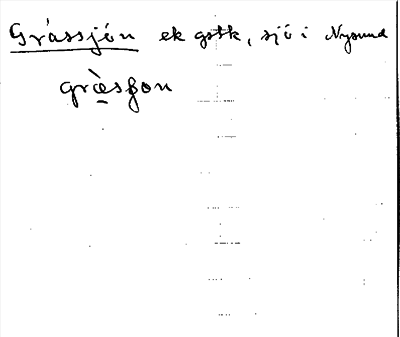 Gråssjön ek gstk, sjö i Nysund
gràsfon